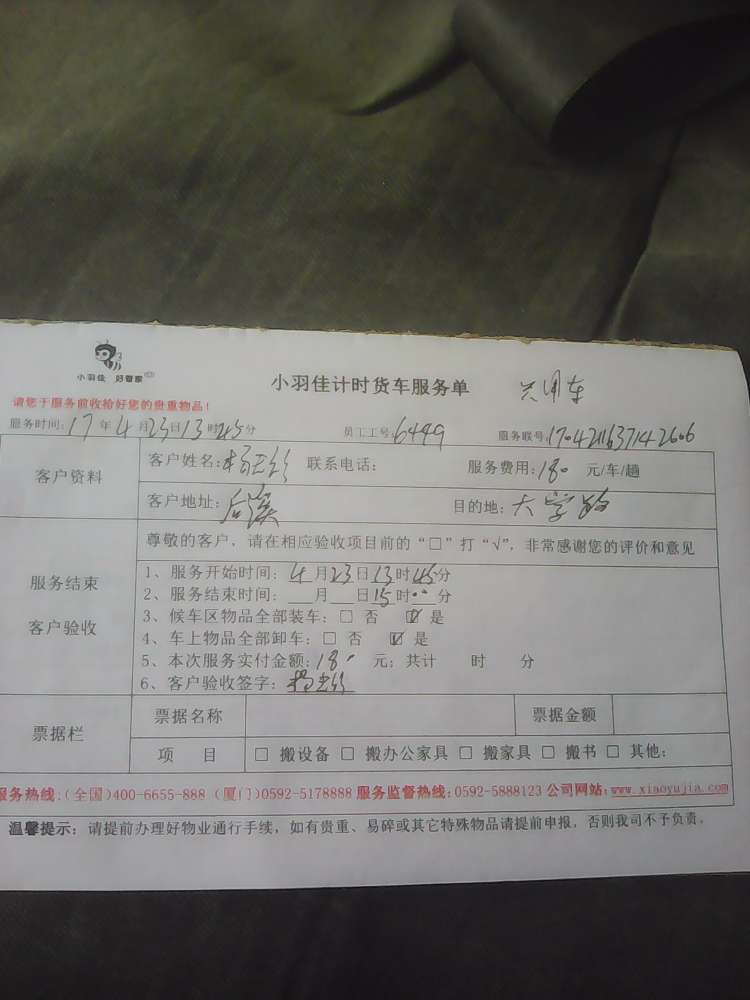 小羽佳 好管家
小羽佳计时货车服务单
请您于服务前收拾好您的贵重物品！
服务时间：17年4月23日13时45分 员工工号：6449 服务联号：
客户资料
客户姓名： 联系电话： 服务费用：180 元/车/趟
客户地址：后溪 目的地：大学路
服务结束
客户验收
尊敬的客户，请在相应验收项目前的“□”打“√”，非常感谢您的评价和意见
1、服务开始时间：4月23日13时45分
2、服务结束时间：__月__日15时分
3、候车区物品全部装车：□ 否 ☑ 是
4、车上物品全部卸车：□ 否 ☑ 是
5、本次服务实付金额：180 元；共计 时 分
6、客户验收签字：
票据栏
票据名称 票据金额
项 目 □ 搬设备 □ 搬办公家具 □ 搬家具 □ 搬书 □ 其他：
服务热线：(全国)400-6655-888 (厦门)0592-5178888 服务监督热线：0592-5888123 公司网站：www.xiaoyujia.com
温馨提示：请提前办理好物业通行手续，如有贵重、易碎或其它特殊物品请提前申报，否则我司不予负责。